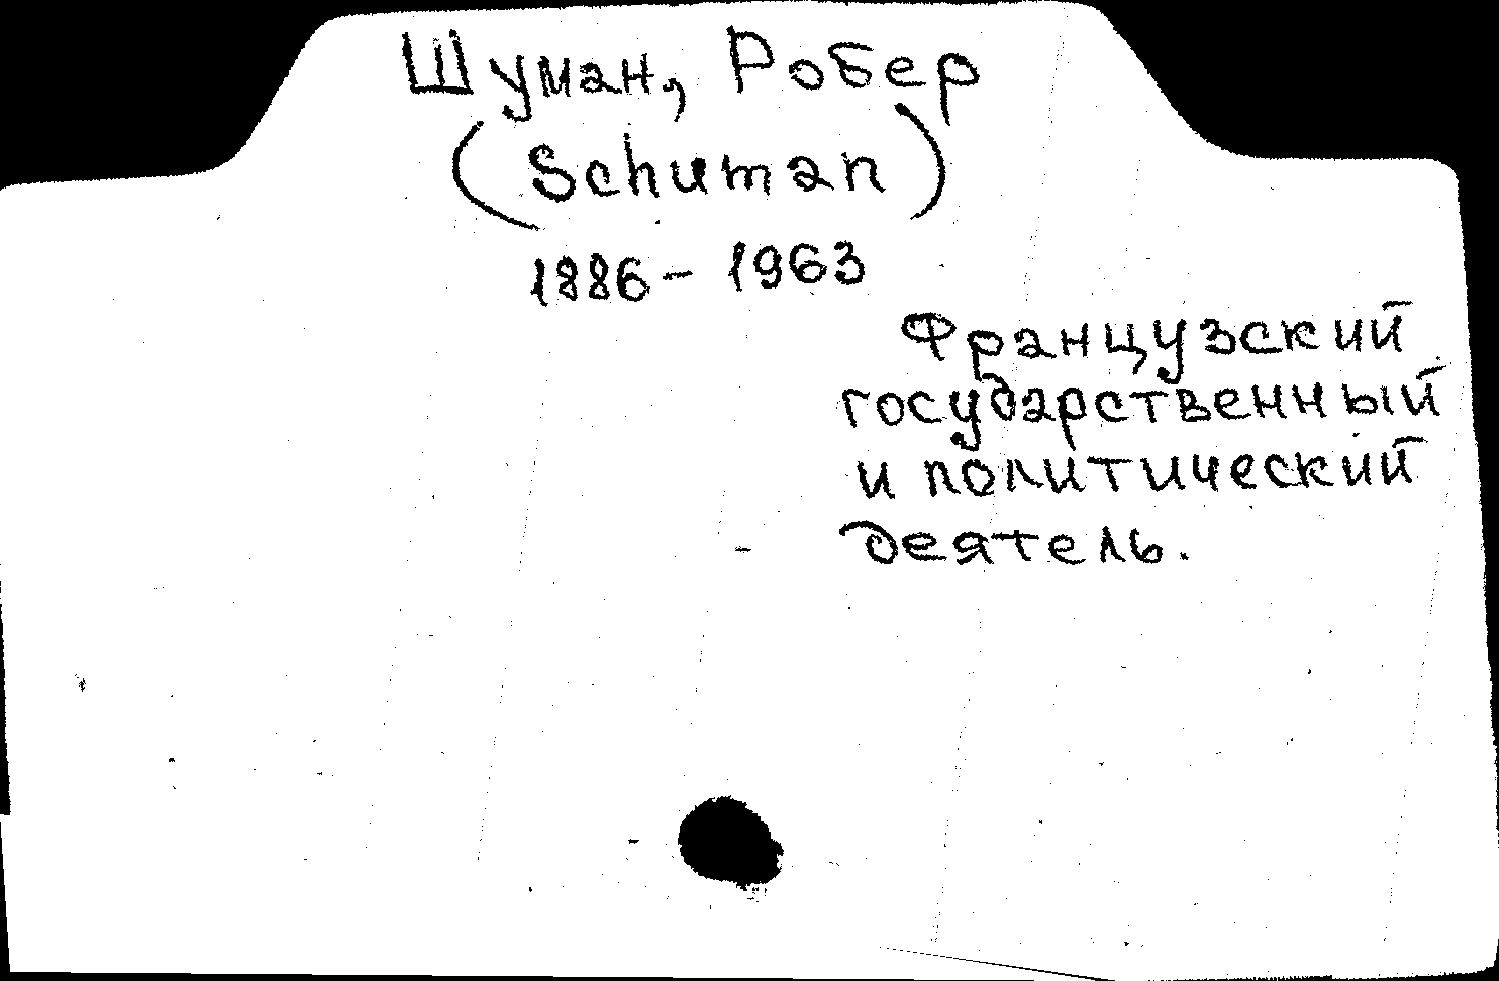 Шуман, Робер
(Schuman)
1886 - 1963
Французский
государственный
и политический
деятель.